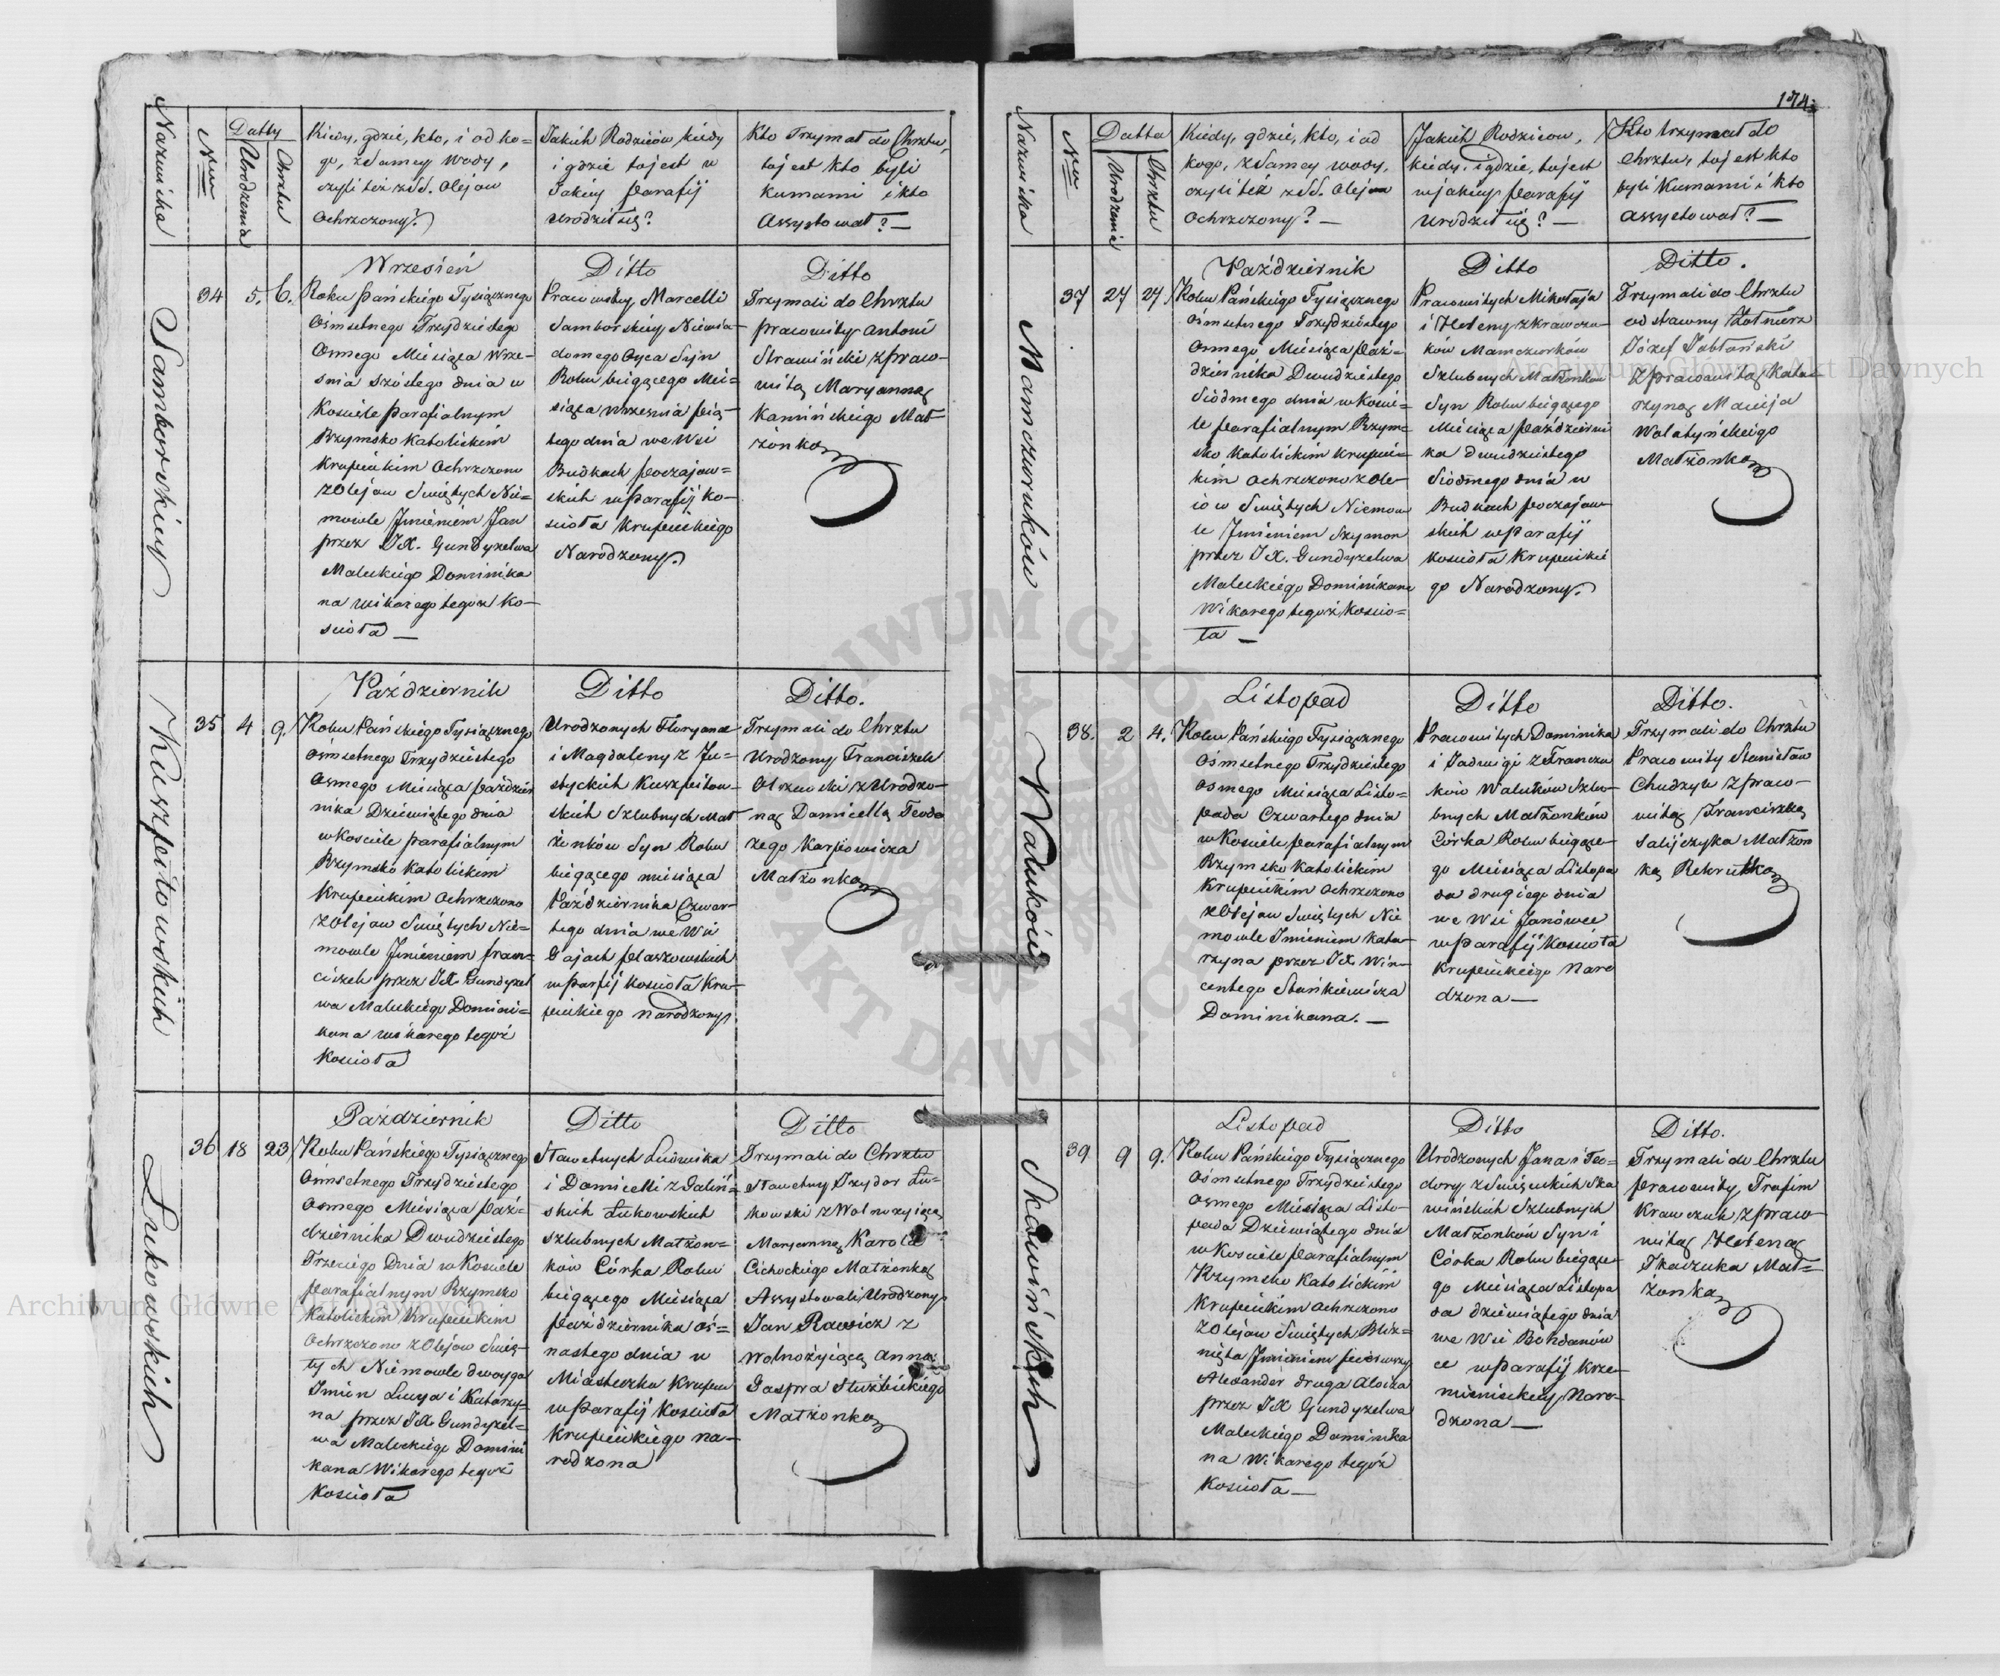 Nazwiska
Nro
Datty
Urodzenia
Chrztu
Kiedy, gdzie, kto, i od ko=
go, z samey wody,
czyli też z SS. Olejow
ochrzczony?
Jakich Rodziców kiedy
i gdzie to jest w
Jakiey Parafij
urodził się?
Kto Trzymał do Chrztu,
to jest kto byli
kumami i kto
Assystował? —
Samborskiey
34
5.
6.
Wrzesień
Roku Pańskiego Tysiącznego
Ośmsetnego Trzydziestego
Osmego Miesiąca Wrze-
snia szóstego dnia w
Kościele parafialnym
Rzymsko Katolickim
Krupeckim ochrzczono
z Olejow Swiętych Nie=
mowle Jmieniem Jan
przez JX. Gundyzelwa
Maleckiego Dominika
na wikarego tegoż Ko-
scioła —
Ditto
Pracowitey Marcelli
Samborskiey Niewia-
domego Oyca Syn
Roku biegącego Mie=
siąca wrzesnia pią-
tego dnia we Wsi
Budkach poczajow=
skich w Parafij ko-
scioła Krupeckiego
Narodzony.
Ditto
Trzymali do Chrztu
pracowity Antoni
Strawiński z praw-
witą Maryanną
Kamińskiego Mał-
żonką
Kuszpitowskich
35
4
9.
Październik
Roku Pańskiego Tysiącznego
ośmsetnego Trzydziestego
Osmego Miesiąca paździer
nika Dziewiątego dnia
w Kosciele parafialnym
Rzymsko Katolickim
Krupeckim Ochrzczono
z Olejow Swiętych Nie=
mowle Jmieniem fran=
ciszek przez JX. Gundyzel
wa Maleckiego Domini=
kana wikarego tegoż
Kościoła
Ditto
Urodzonych Floryana
i Magdaleny z Ju=
styckich Kuszpitow=
skich Szlubnych Mał
żonków Syn Roku
biegącego miesiąca
Października Czwar-
tego dnia we Wsi
Gajach płaszowskich
w parfij Kosciola Kru-
peickiego narodzony.
Ditto.
Trzymali do Chrztu
Urodzony Franciszek
Olszewski z Urodzo-
ną Domicellą Teodo
zego Karpowicza
Małżonką
Łukowskich
36
18
23
Październik
Roku Pańskiego Tysiącznego
Ośmsetnego Trzydziestego
osmego Miesiąca Paź-
dziernika Dwudziestego
Trzeciego Dnia w Kosciele
parafialnym Rzymsko
Katolickim Krupeckim
ochrzczono z Olejow Swię-
tych Niemowle dwoyga
Jmien Lucya i Katarzy-
na przez JX Gundyzel=
wa Maleckiego Domini
kana Wikarego tegoż
Kościoła
Ditto
Sławetnych Ludwika
i Domicelli z Galiń=
skich Łukowskich
szlubnych Małżon=
ków Córka Roku
biegącego Miesiąca
października oś=
nastego dnia w
Miasteczku Krupcu
w parafij Kościoła
Krupeckiego na-
rodzona
Ditto
Trzymali do Chrztu
Sławetny Jzydor Łu-
kowski z Wolnożyiącą
Maryanną Karola
Cichockiego Małżonką
Assystowali Urodzony
Jan Rawicz z
Wolnożyiącą Anną
Gaspra Służbickiego
Małżonką
174.
Nazwiska
Nro
Datta
Urodzenia
Chrztu
Kiedy, gdzie, kto, i od
kogo, z samey wody,
czyli też z SS. Olejow
ochrzczony? —
Jakich Rodzicow,
kiedy i gdzie, to jest
w jakiey Parafij
urodził się? —
Kto trzymał do
Chrztu, to jest kto
byli Kumami i kto
Assystował? —
Mamczuruków
37
27
27
Październik
Roku Pańskiego Tysiącznego
ośmsetnego Trzydziestego
Osmego Miesiąca Paź-
dziernika Dwudziestego
Siódmego dnia w Kosci=
le parafialnym Rzym-
sko Katolickim Krupec-
kim ochrzczono z Ole-
iow Swiętych Niemow
le Jmieniem Szymon
przez JX. Gundyzelwa
Maleckiego Dominikana
Wikarego tegoż Koscio=
ła —
Ditto
Pracowitych Mikołaja
i Heleny z Krawczu-
ków Mamczurków
Szlubnych Małżonkow
Syn Roku biegącego
Miesiąca Październi
ka dwudziestego
Siódmego dnia w
Budkach poczajow-
skich w parafij
Kościoła Krupeckie
go Narodzony.
Ditto.
Trzymali do Chrztu
od stawny Żołnierz
Józef Jabłański
z pracowitą Kata-
rzyną Macieja
Wolatyńskiego
Małżonką
Waluków
38.
2
4.
Listopad
Roku Pańskiego Tysiącznego
Ośmsetnego Trzydziestego
osmego Miesiąca Listo-
pada Czwartego dnia
w Kosciele parafialnym
Rzymsko Katolickim
Krupeickim ochrzczono
z Olejow Swiętych Nie
mowle Jmieniem Kata-
rzyna przez JX. Win-
centego Stańkiewicza
Dominikana. —
Ditto
Pracowitych Dominika
i Jadwigi z Franczu
ków Waluków Szlu-
bnych Małżonków
Córka Roku biegące-
go Miesiąca Listopa
da drugiego dnia
we Wsi Janówce
w Parafij Kościoła
Krupeickiego Naro
dzona —
Ditto.
Trzymali do Chrztu
Pracowity Stanisław
Chudzyk z praco-
witą Franciszką
Saliyczyka Małżon
ką Rekrutką
Skawińskich
39
9
9.
Listopad
Roku Pańskiego Tysiącznego
Ośmsetnego Trzydziestego
Osmego Miesiąca Listo-
pada Dziewiątego dnia
w Kosciele Parafialnym
Rzymsko Katolickim
Krupeickim ochrzczono
z Olejow Swiętych Bliź-
nięta Jmieniem pierwszy
Alexander druga Aloiza
przez JX Gundyzelwa
Maleckiego Dominika
na Wikarego tegoż
Kościoła —
Ditto
Urodzonych Jana i Teo=
dory z Swięckich Ska
wińskich Szlubnych
Małżonków Syn i
Córka Roku biegące-
go Miesiąca Listopa
da dziewiątego dnia
we Wsi Bohdanów
ce w parafij Krze-
mienieckiey Naro-
dzona —
Ditto.
Trzymali do Chrztu
pracowity Trofim
Krawczuk z praw-
witą Heleną
Tkaczuka Mał=
żonką
Archiwum Główne Akt Dawnych
Archiwum Główne Akt Dawnych
ARCHIWUM GŁÓWNE AKT DAWNYCH